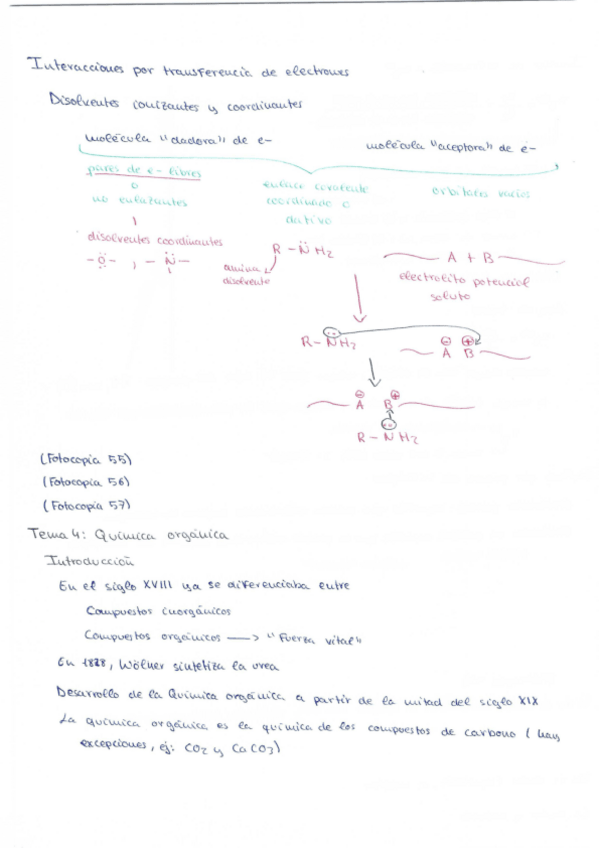 Interacciones por transferencia de electrones
Disolventes ionizantes y coordinantes
molécula "dadora" de e-
molécula "aceptora" de e-
pares de e- libres
o
no enlazantes
enlace covalente
coordinado o
dativo
orbitales vacíos
disolventes coordinantes
-Ö- , -N̈-
R-N̈H2
amina
disolvente
A + B
electrolito potencial
soluto
R-NH2
⊖ ⊕
A B
⊖ ⊕
A B
R-NH2
(Fotocopia 55)
(Fotocopia 56)
(Fotocopia 57)
Tema 4: Química orgánica
Introducción
En el siglo XVIII ya se diferenciaba entre
Compuestos inorgánicos
Compuestos orgánicos → "Fuerza vital"
En 1828, Wölner sintetiza la urea
Desarrollo de la Química orgánica a partir de la mitad del siglo XIX
La química orgánica es la química de los compuestos de carbono (hay
excepciones, ej: CO2 y CaCO3)